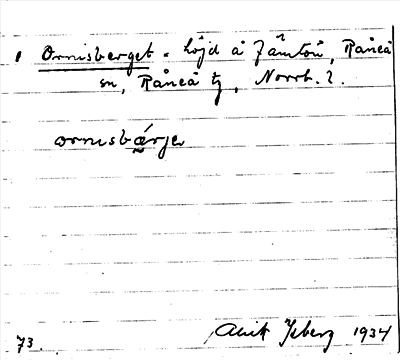 1 Ormsberget = höjd å Jämtön, Råneå
sn, Råneå tg, Norrb. l.
ormsbärje
73. Alrik Ysberg 1934